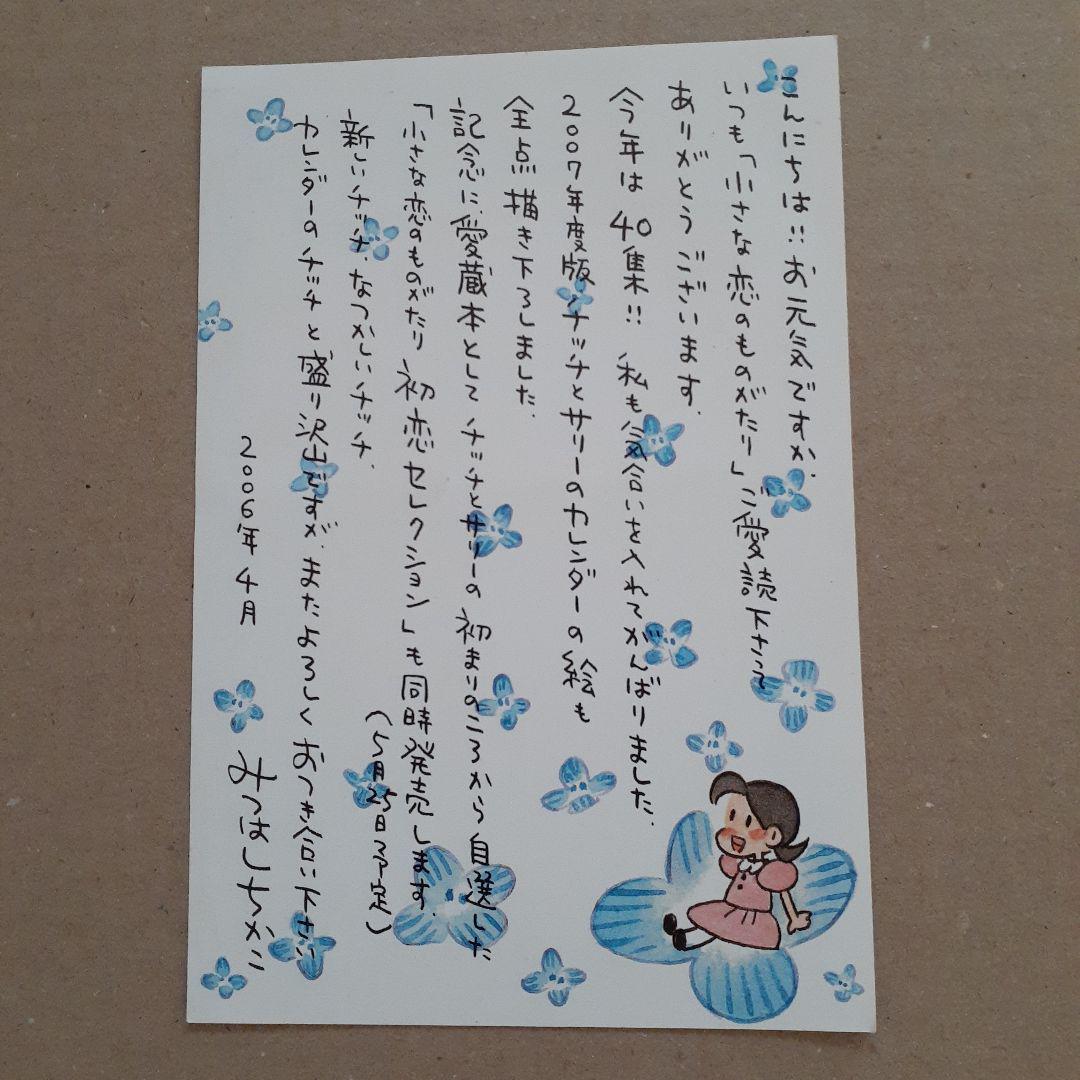 こんにちは!!お元気ですか.
いつも「小さな恋のものがたり」ご愛読下さって
ありがとうございます.
今年は40集!! 私も気合いを入れてがんばりました.
2007年度版チッチとサリーのカレンダーの絵も
全点描き下ろしました.
記念に愛蔵本としてチッチとサリーの初まりのころから自選した
「小さな恋のものがたり 初恋セレクション」も同時発売します.
(5月25日予定)
新しいチッチ なつかしいチッチ.
カレンダーのチッチと盛り沢山ですが.またよろしくおつき合い下さい
2006年4月
みつはしちかこ